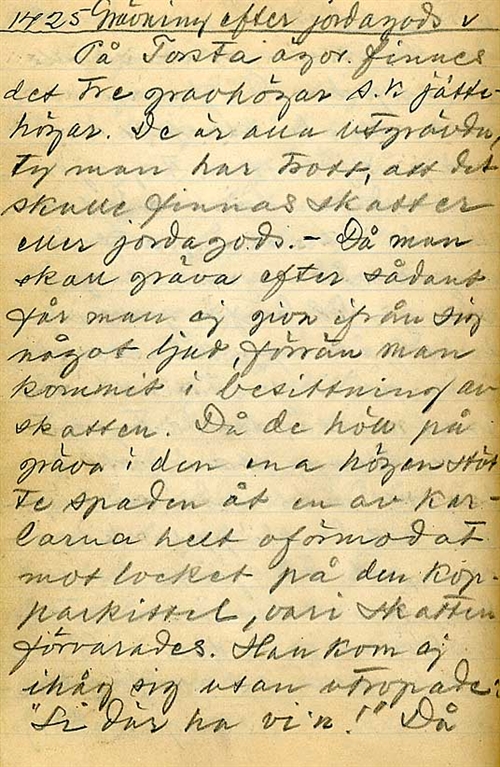 1425 Grävning efter jordagods v
På Torsta ägor finnes
det tre gravhögar s.k jätte-
högar. De är alla utgrävda,
ty man har trott, att det
skulle finnas skatter
eller jordagods. – Då man
skall gräva efter sådant
får man ej giva ifrån sig
något ljud, förrän man
kommit i besittning av
skatten. Då de höll på
gräva i den ena högen stöt
te spaden åt en av kar-
larna helt oförmodat
mot locket på den kop-
parkittel, vari skatten
förvarades. Han kom ej
ihåg sig utan utropade:
"Si där ha vi'n!" Då